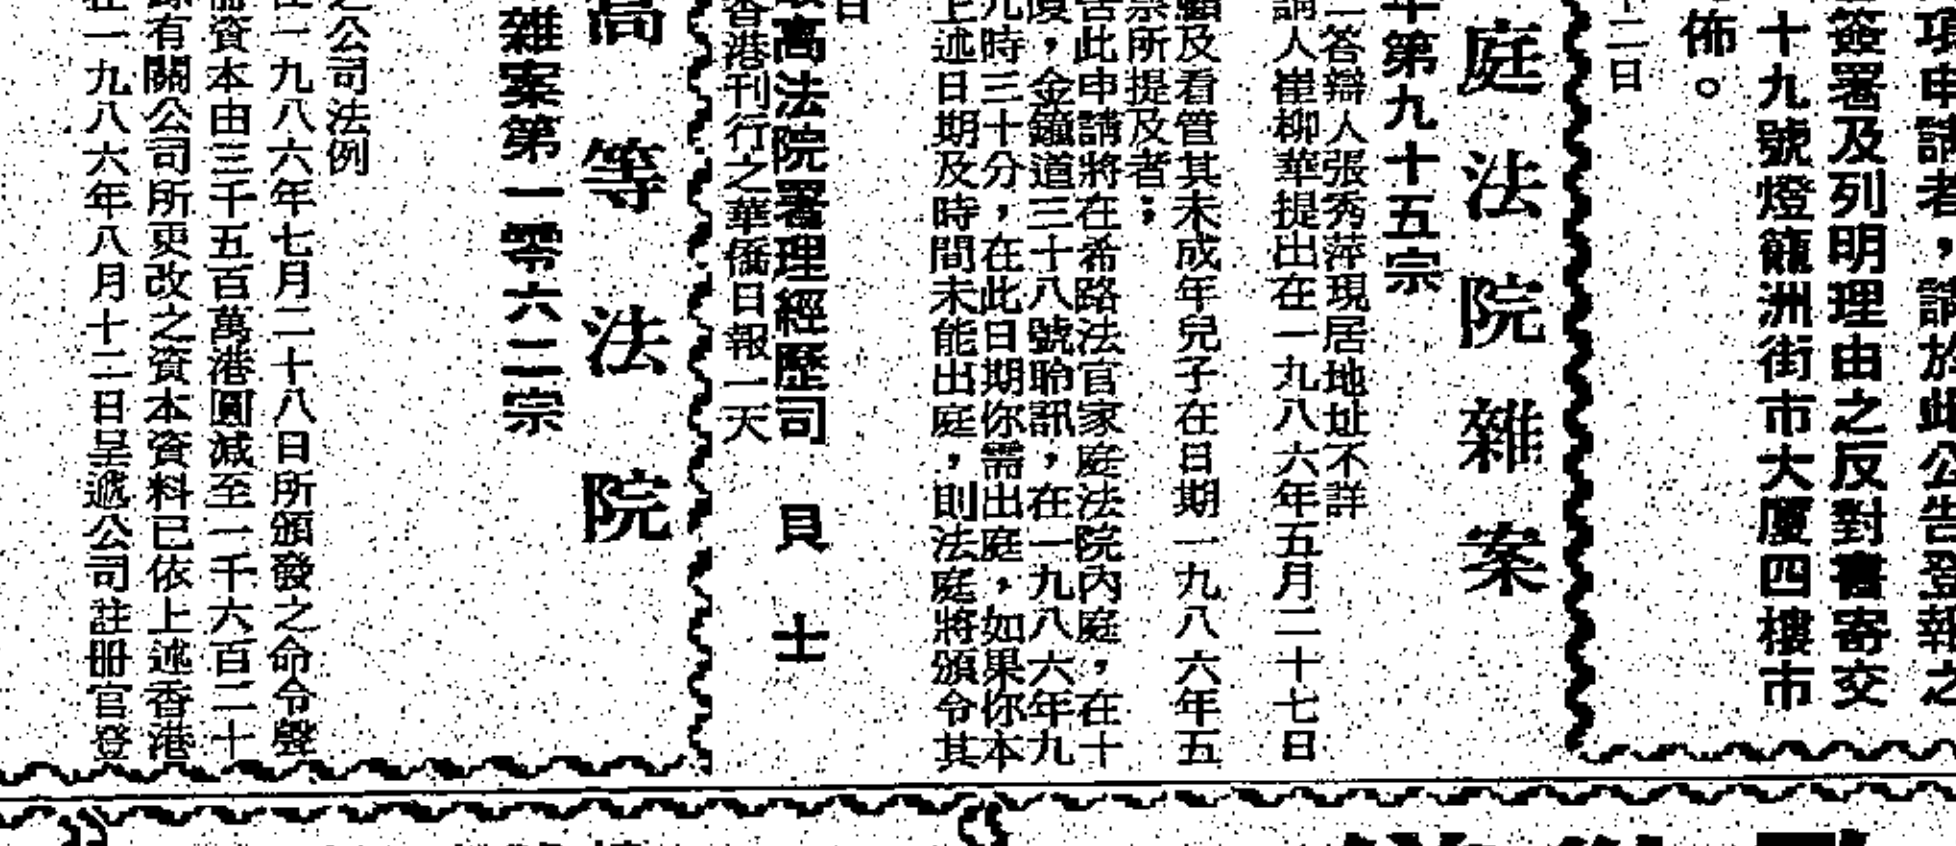 項申請者，請於此公告登報之
簽署及列明理由之反對書寄交
十九號燈籠洲街市大廈四樓市
佈。
十二日
庭法院雜案
年第九十五宗
二答辯人張秀萍現居地址不詳
請人崔柳華提出在一九八六年五月二十七日
顧及看管其未成年兒子在日期一九八六年五
票所提及者；
告此申請將在希路法官家庭法院內庭，在十
廈，金鐘道三十八號聆訊，在一九八六年九
九時三十分，在此日期你需出庭，如果你本
上述日期及時間未能出庭，則法庭將頒令其
日
最高法院署理經歷司 貝士
香港刊行之華僑日報一天
高等法院
雜案第一零六二宗
之公司法例
在一九八六年七月二十八日所頒發之命令聲
需資本由三千五百萬港圓減至一千六百二十
錄有關公司所更改之資本資料已依上述香港
在一九八六年八月十二日呈遞公司註冊官登